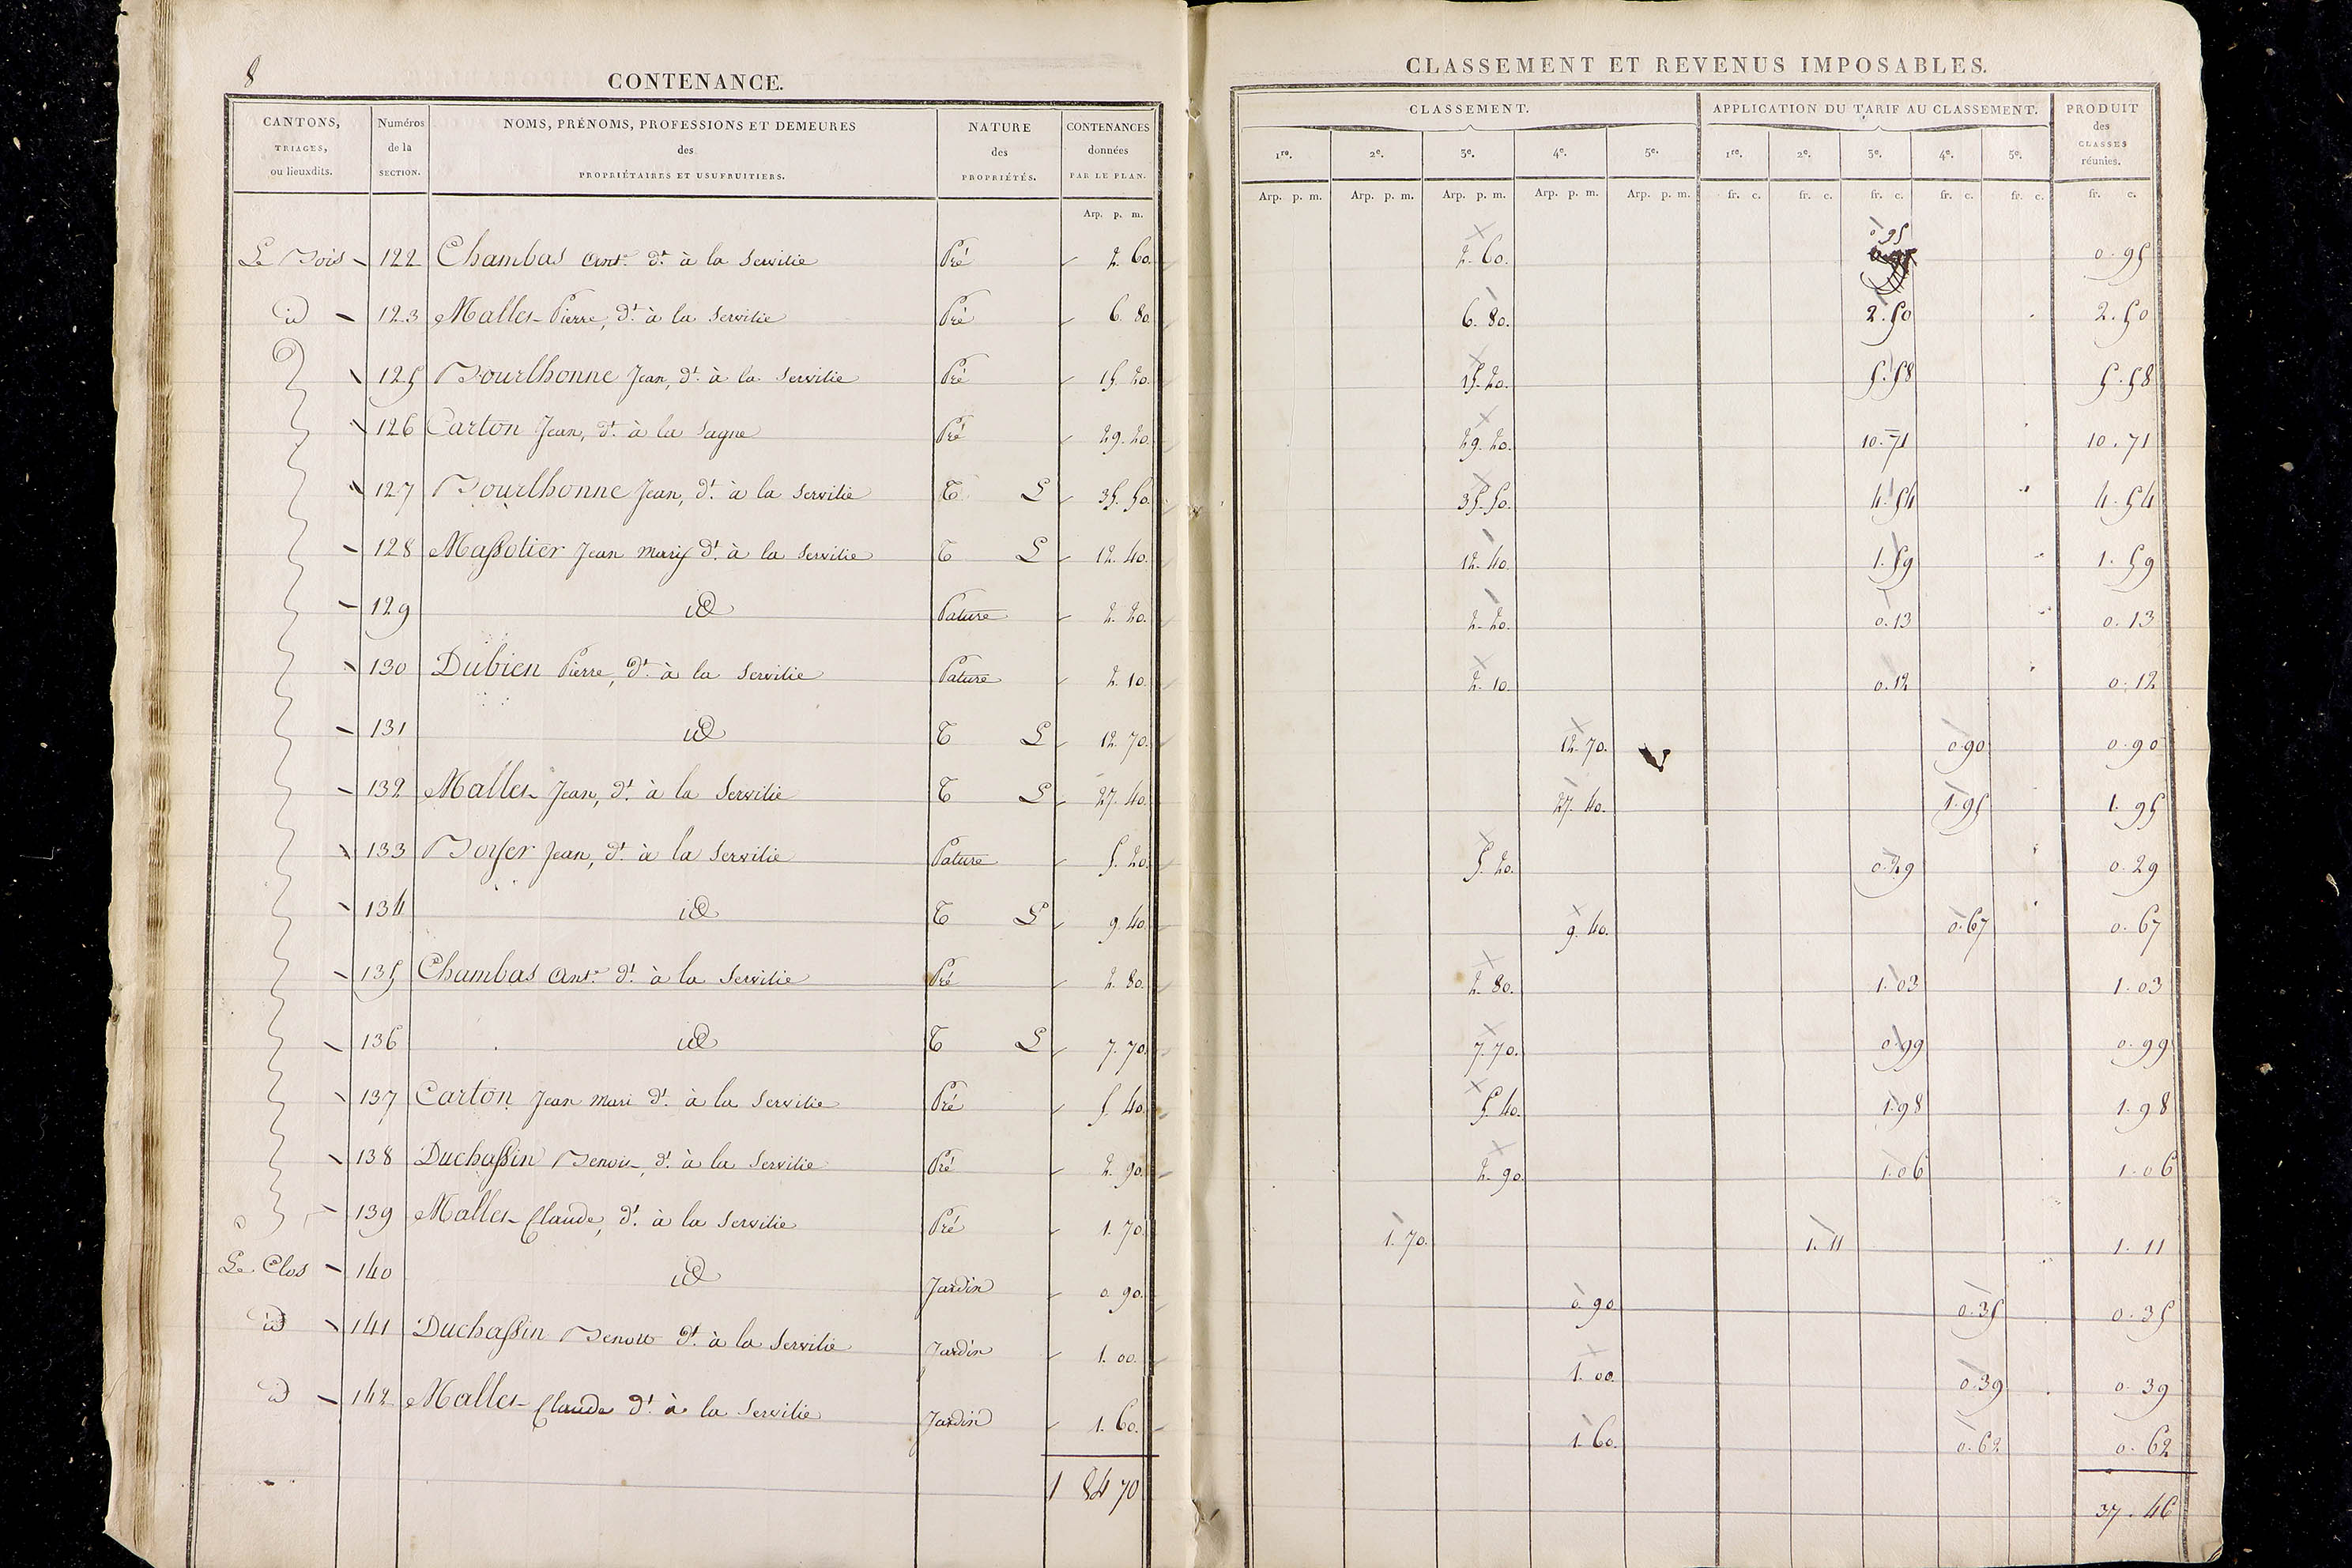 8
CONTENANCE.
CANTONS, TRIAGES, ou lieuxdits. | Numéros de la SECTION. | NOMS, PRÉNOMS, PROFESSIONS ET DEMEURES des PROPRIÉTAIRES ET USUFRUITIERS. | NATURE des PROPRIÉTÉS. | CONTENANCES données PAR LE PLAN.
Arp. p. m.
Le Bois 122 Chambas Ant.e dt. à la Servilie Pré 2. 60.
id 123 Malles Pierre, dt. à la Servilie Pré 6. 80.
125 Bourlhonne Jean, dt. à la Servilie Pré 15. 20.
126 Carton Jean, dt. à la Sagne Pré 29. 20.
127 Bourlhonne Jean, dt. à la Servilie T L 35. 50.
128 Massotier Jean Marie dt. à la Servilie T L 12. 40.
129 id Pature 2. 20.
130 Dubien Pierre, dt. à la Servilie Pature 2. 10.
131 id T L 12. 70.
132 Malles Jean, dt. à la Servilie T L 27. 40.
133 Boyer Jean, dt. à la Servilie Pature 5. 20.
134 id T L 9. 40.
135 Chambas Ant.e dt. à la Servilie Pré 2. 80.
136 id T L 7. 70.
137 Carton Jean Mari dt. à la Servilie Pré 5. 40.
138 Duchassin Benoit, dt. à la Servilie Pré 2. 90.
139 Malles Claude, dt. à la Servilie Pré 1. 70.
Le Clos 140 id Jardin 0. 90.
id 141 Duchassin Benoit dt. à la Servilie Jardin 1. 00.
id 142 Malles Claude dt. à la Servilie Jardin 1. 60.
1 84 70
CLASSEMENT ET REVENUS IMPOSABLES.
CLASSEMENT. | APPLICATION DU TARIF AU CLASSEMENT. | PRODUIT des CLASSES réunies.
1re. 2e. 3e. 4e. 5e. 1re. 2e. 3e. 4e. 5e.
Arp. p. m. Arp. p. m. Arp. p. m. Arp. p. m. Arp. p. m. fr. c. fr. c. fr. c. fr. c. fr. c. fr. c.
2. 60. 0.95 0.95
6. 80. 2.50 2.50
15. 20. 5.58 5.58
29. 20. 10.71 10.71
35. 50. 4.54 4.54
12. 40. 1.59 1.59
2. 20. 0.13 0.13
2. 10. 0.12 0.12
12. 70. 0.90 0.90
27. 40. 1.95 1.95
5. 20. 0.29 0.29
9. 40. 0.67 0.67
2. 80. 1.03 1.03
7. 70. 0.99 0.99
5. 40. 1.98 1.98
2. 90. 1.06 1.06
1. 70. 1.11 1.11
0. 90. 0.35 0.35
1. 00. 0.39 0.39
1. 60. 0.62 0.62
37.46